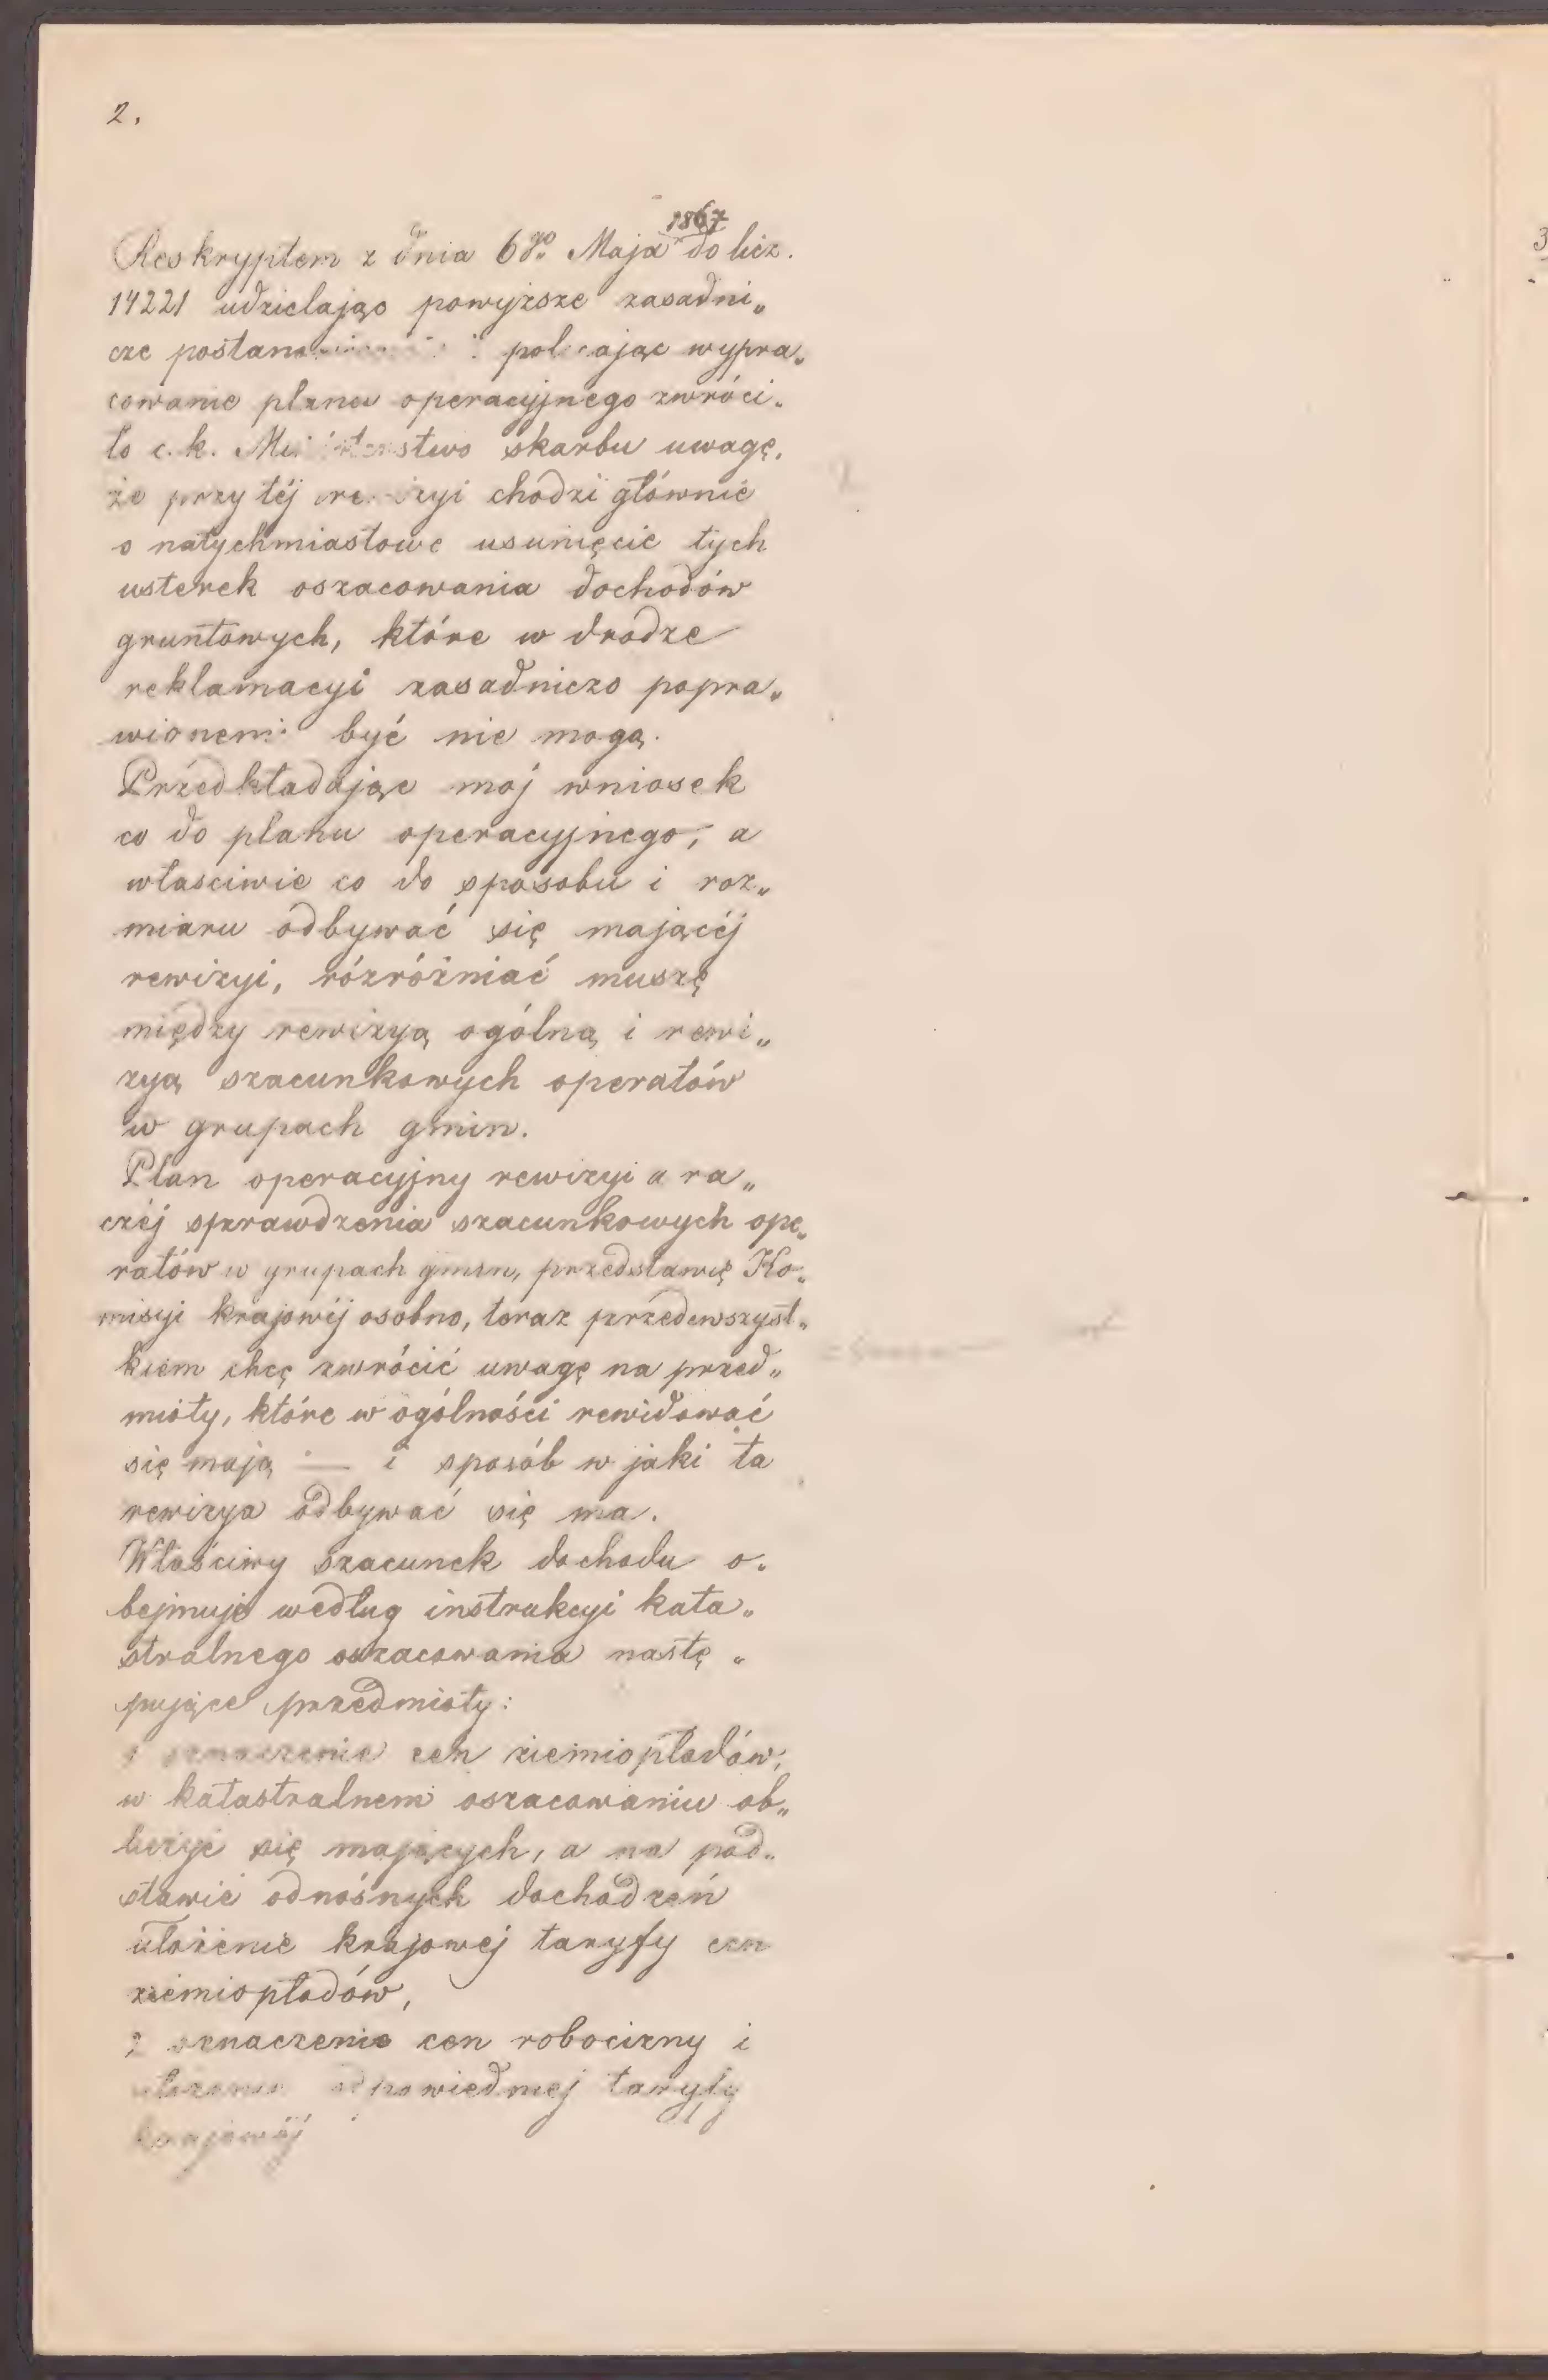 2.
1867
Reskryptem z dnia 6go. Maja do licz.
14221 udzielając powyższe zasadni„
cze polecając wypra„
cowanie planu operacyjnego zwróci„
ło c. k. Ministerstwo skarbu uwagę,
że przy téj rewizyi chodzi głównie
o natychmiastowe usunięcie tych
usterek oszacowania dochodów
gruntowych, które w drodze
reklamacyi zasadniczo popra„
wionemi być nie mogą.
Przedkładając mój wniosek
co do planu operacyjnego, a
własciwie co do sposobu i roz„
miaru odbywać się mającéj
rewizyi, rózróżniać muszę
między rewizyą ogólną i rewi„
zyą szacunkowych operatów
w grupach gmin.
Plan operacyjny rewizyi a ra„
czéj sprawdzenia szacunkowych ope„
ratów w grupach gmin, przedstawię Ko„
misyi krajowéj osobno, teraz przedewszyst„
kiem chcę zwrócić uwagę na przed„
mioty, które w ogólności rewidować
się mają — i sposób w jaki ta
rewizya odbywać się ma.
Właściwy szacunek dochodu o„
bejmuje według instrukcyi kata„
stralnego oszacowania nastę„
pujące przedmioty:
oznaczenie cen ziemiopłodów,
w katastralnem oszacowaniu ob„
liczyć się mających, a na pod„
stawie odnośnych dochodzeń
ułożenie krajowej taryfy cen
ziemiopłodów,
2 oznaczenie cen robocizny i
ułożenie odpowiedniej taryfy
krajowéj
3